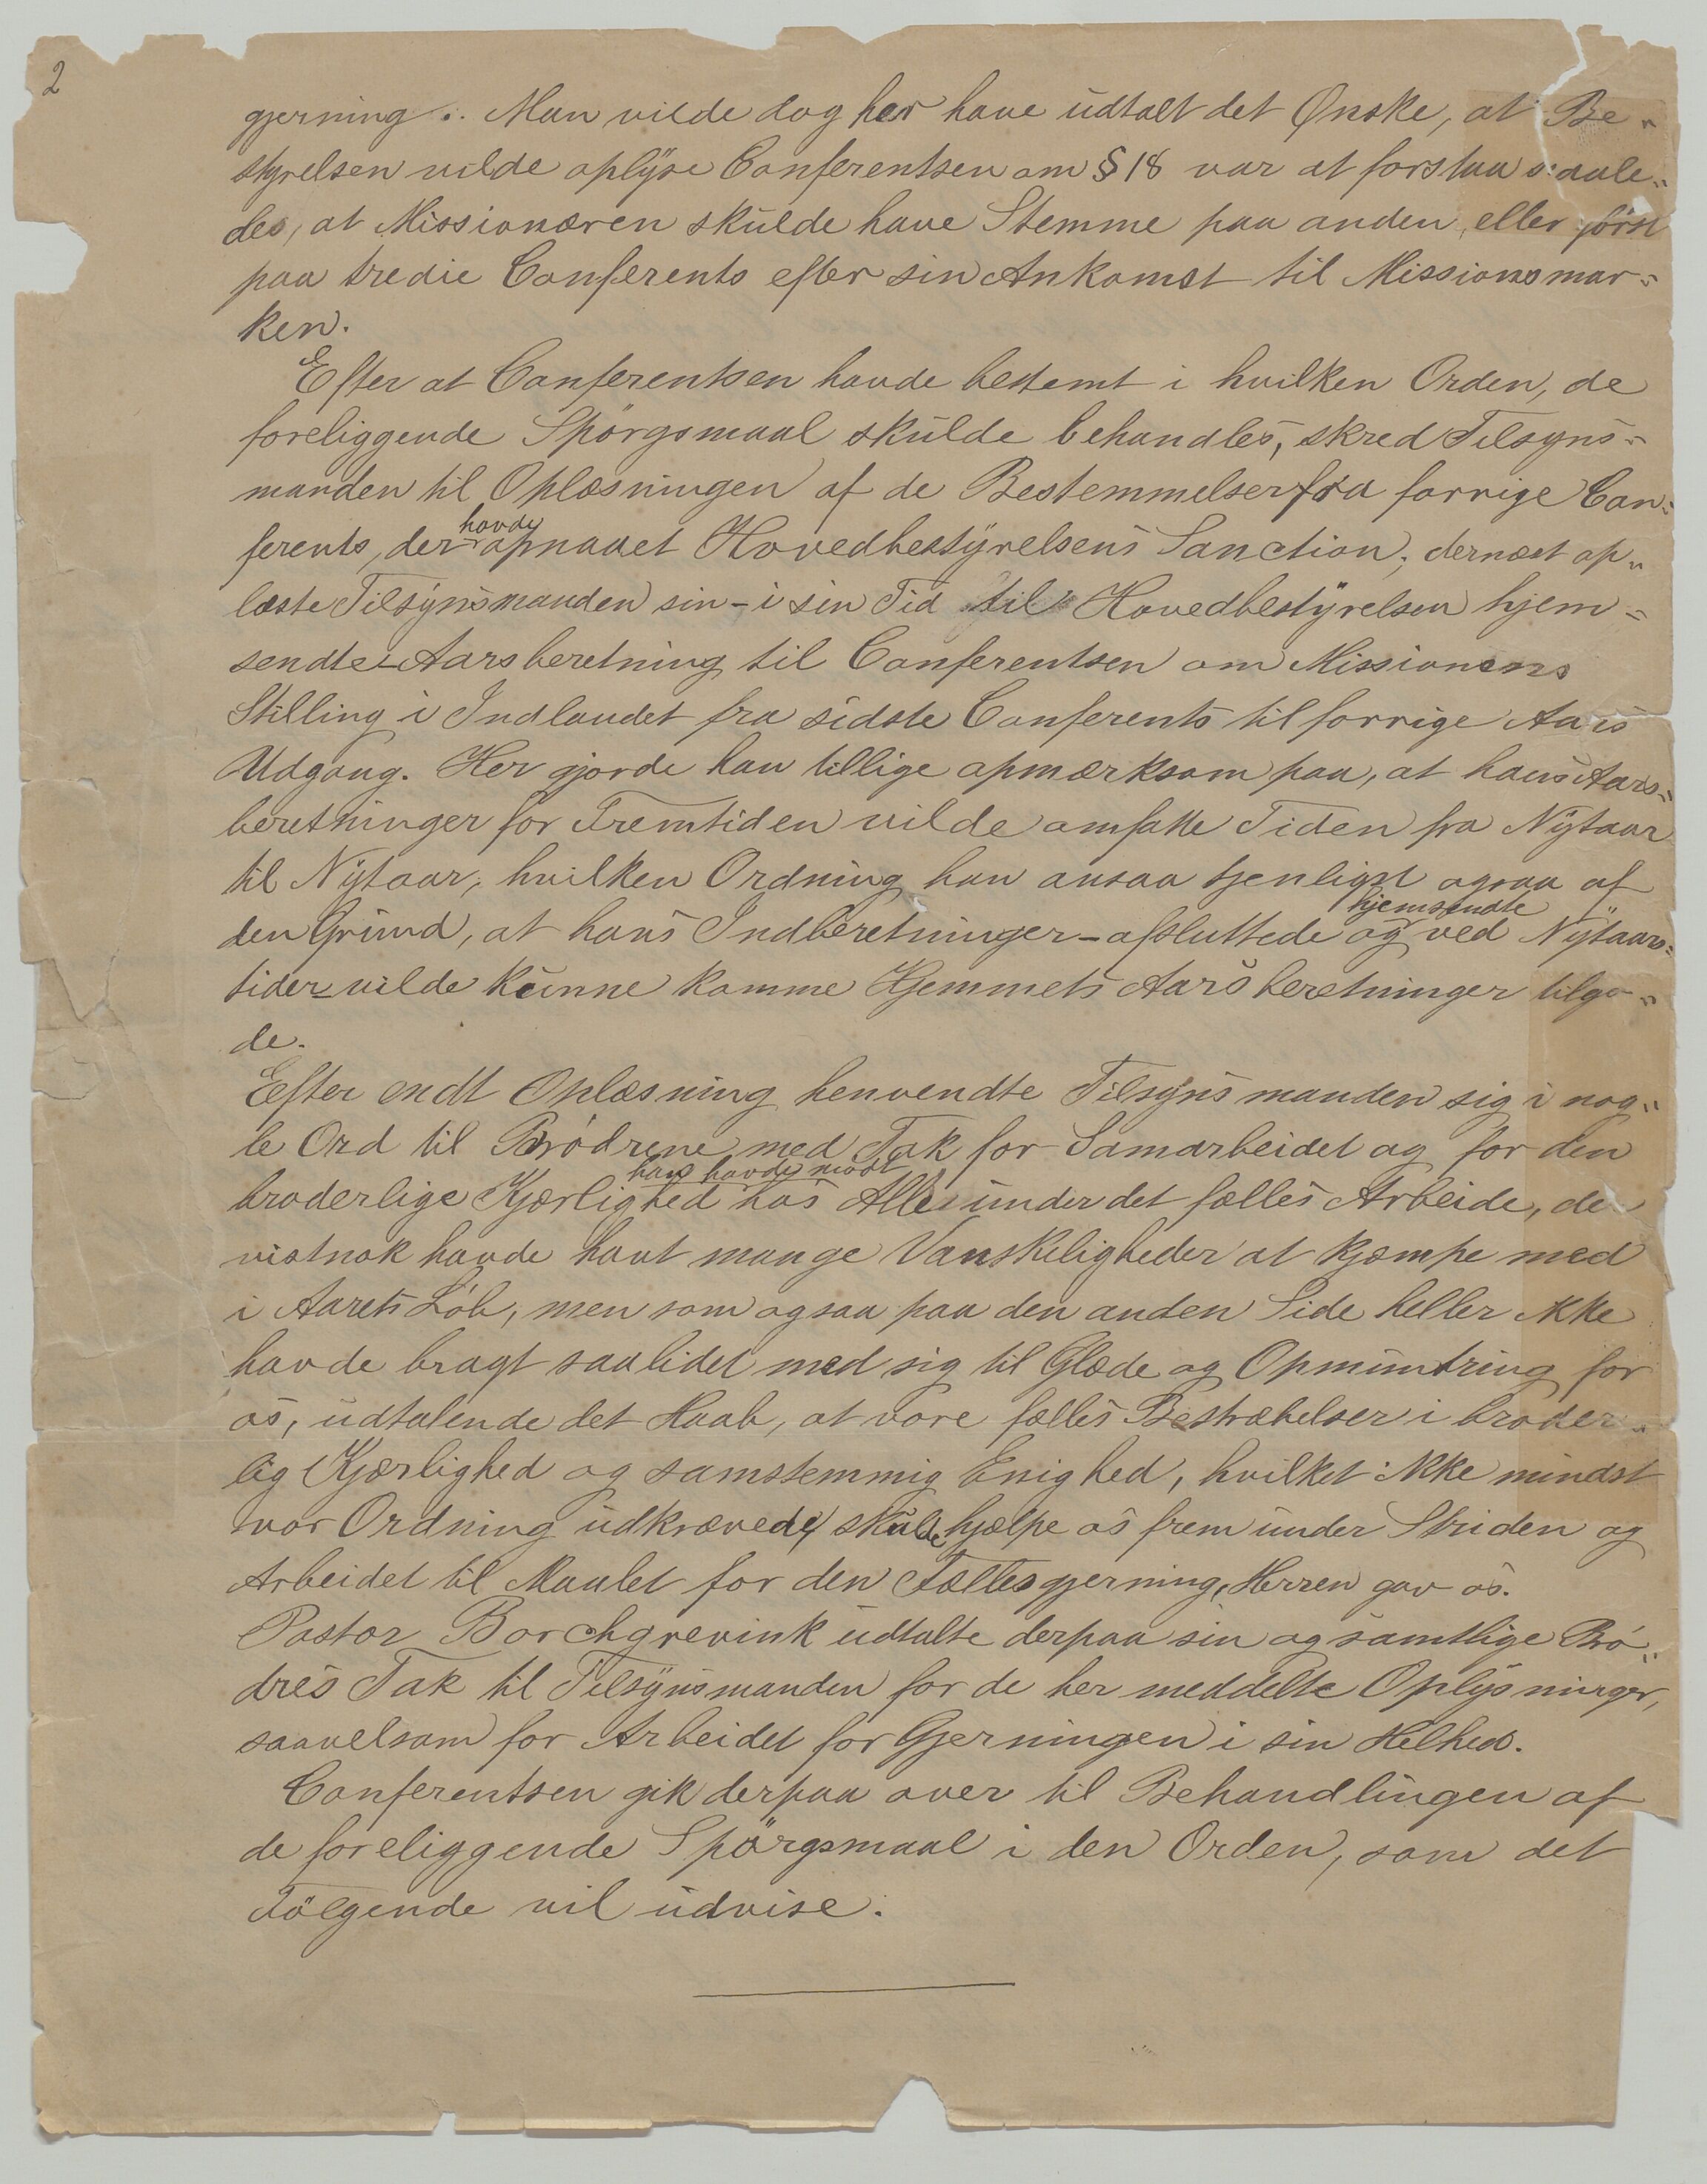 2
gjerning.. Man vilde dog her have udtalt det Ønske, at Be-
styrelsen vilde oplyse Conferentsen om § 18 var at forstaa saale-
des, at Missionæren skulde have Stemme paa anden, eller først
paa tredie Conferents efter sin Ankomst til Missionsmar-
ken.
Efter at Conferentsen havde bestemt i hvilken Orden, de
foreliggende Spörgsmaal skulde behandles, skred Tilsyns-
manden til Oplæsningen af de Bestemmelser fra forrige Con-
ferents, der havde opnaaet Hovedbestyrelsens Sanction; dernæst op-
læste Tilsynsmanden sin - i sin Tid til Hovedbestyrelsen hjem-
sendte - Aarsberetning til Conferentsen om Missionens
Stilling i Indlandet fra sidste Conferents til forrige Aars
Udgang. Her gjorde han tillige opmærksom paa, at hans Aars-
beretninger for Fremtiden vilde omfatte Tiden fra Nytaar
til Nytaar, hvilken Ordning han ansaa tjenligst ogsaa af
den Grund, at hans Indberetninger - afsluttede og hjemsendte ved Nytaars-
tider - vilde kunne komme Hjemmets Aarsberetninger tilgo-
de.
Efter endt Oplæsning henvendte Tilsynsmanden sig i nog-
le Ord til Brödrene med Tak for Samarbeidet og for den
broderlige Kjærlighed han havde mödt hos Alle under det fælles Arbeide, der
vistnok havde havt mange Vanskeligheder at kjæmpe med
i Aarets Löb, men som ogsaa paa den anden Side heller ikke
havde bragt saalidet med sig til Glæde og Opmuntring for
os, udtalende det Haab, at vore fælles Bestræbelser i broder-
lig Kjærlighed og samstemmig Enighed, hvilket ikke mindst
vor Ordning udkrævede, skulde hjælpe os frem under Striden og
Arbeidet til Maalet for den Fællesgjerning, Herren gav os.
Pastor Borchgrevink udtalte derpaa sin og samtlige Brö-
dres Tak til Tilsynsmanden for de her meddelte Oplysninger,
saavelsom for Arbeidet for Gjerningen i sin Helhed.
Conferentsen gik derpaa over til Behandlingen af
de foreliggende Spörgsmaal i den Orden, som det
Fölgende vil udvise.